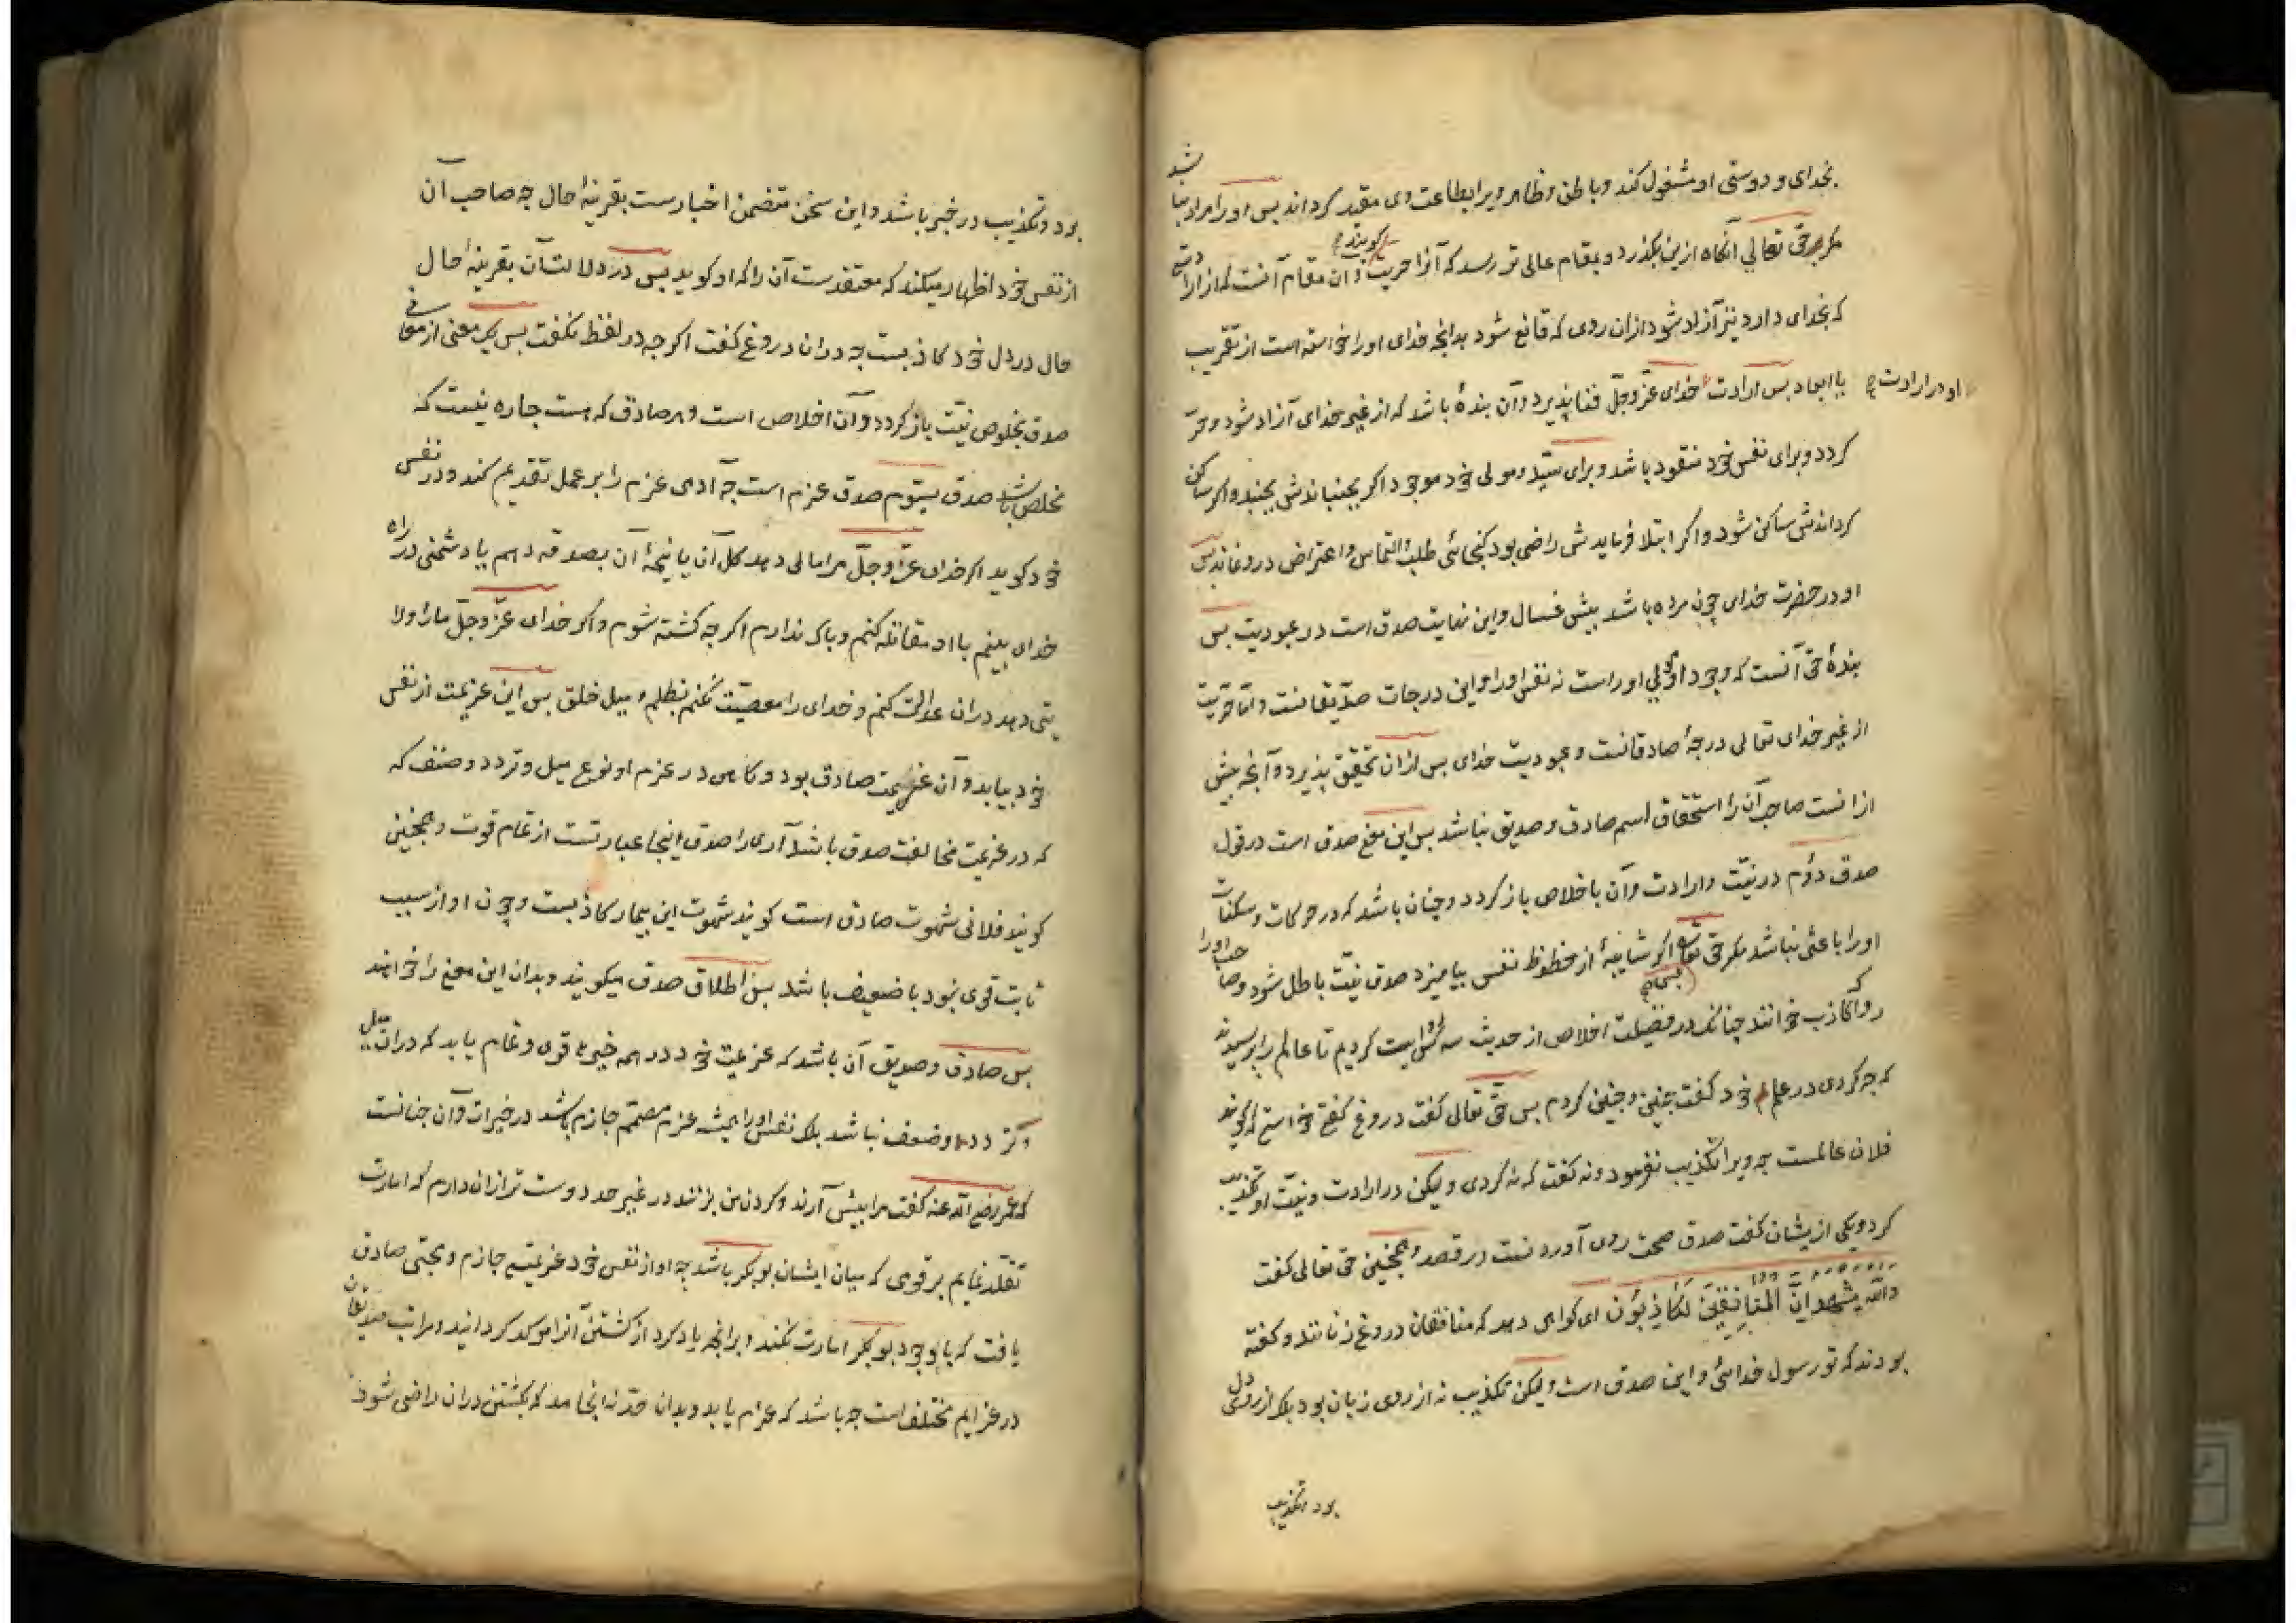 بخدای و دوستی او مشغول کند و باطن و ظاهر ویرا بطاعت وی مقید کرداند بس اورا مراد نباشد
مکر حق تعالی آنکاه ازین بکذرد و بمقام عالی تر رسد که آنرا حریت کویند و ان مقام آنست که از ارادتی
که بخدای دارد نیز آزاد شود ازان روی که قانع شود بدانچه خدای اورا خواسته است از تقریب
یا ابعاد بس ارادت او در ارادت خدای عزّ وجلّ فنا پذیرد وآن بندهٔ باشد که از غیر خدای آزاد شود و حرّ
کردد و برای نفس خود مفقود باشد و برای سیّد و مولی خود موجود اکر بجنباندش بجنبد و اکر ساکن
کرداندش ساکن شود و اکر ابتلا فرمایدش راضی بود کنجائی طلب و التماس و اعتراض درو نماند بس
او در حضرت خدای چون مرده باشد بیش غسال و این نهایت صدق است در عبودیت بس
بندهٔ حق آنست که وجود او مولی اوراست نه نفس اورا و این درجات صدّیقانست و امّا حریت
از غیر خدای تعالی درجهٔ صادقانست و عبودیت خدای بس ازان تحقیق پذیرد و آنچه بیش
ازانست صاحب آن را استحقاق اسم صادق و صدیق نباشد بس این معنی صدق است در قول
صدق دوم در نیّت و ارادت وآن باخلاص باز کردد و چنان باشد که در حرکات و سکنات
اورا باعثی نباشد مکر حق تعالی اکر شایبهٔ از حظوظ نفس بیامیزد صدق نیّت باطل شود و صاحب اورا
روا که کاذب خوانند چنانکه در فضیلت اخلاص از حدیث سه کس روایت کردیم تا عالم را پرسیدند
که چه کردی در علم خود کفت چنین و چنین کردم بس حق تعالی کفت دروغ کفتی خواستی که کویند
فلان عالمست چه ویرا تکذیب نفرمود و نه کفت که نه کردی ولیکن در ارادت و نیّت او تکذیب
کرد و یکی ازیشان کفت صدق صحت روی آوردنست در قصد و همچنین حق تعالی کفت
والله یشهد انّ المنافقین لکاذبون ای کواهی دهد که منافقان دروغ زنانند و کفته
بودند که تو رسول خدائی و این صدق است ولیکن تکذیب نه از روی زبان بود بلک از روی دل
بود و تکذیب
بود و تکذیب در خبر باشد و این سخن متضمن اخبارست بقرینهٔ حال چه صاحب آن
از نفس خود اظهار میکند که معتقدست آن را که او کوید بس در دلالت آن بقرینهٔ حال
حال در دل خود کاذبست چه دران دروغ کفت اکرچه در لفظ نکفت بس یک معنی از معانی
صدق بخلوص نیّت باز کردد وآن اخلاص است و هر صادق که هست چاره نیست که
مخلص باشد صدق سیّوم صدق عزم است چه آدمی عزم را بر عمل تقدیم کند و در نفس
خود کوید اکر خدای عزّ وجلّ مرا مالی دهد کل آن یا نیمهٔ آن بصدقه دهم یا دشمنی در راه
خدای بینم با او مقاتله کنم و باک ندارم اکرچه کشته شوم و اکر خدای عزّ وجلّ مارا ولا
یتی دهد دران عدالت کنم و خدای را معصیّت نکنم بظلم و میل خلق بس این عزیمت از نفس
خود بیابد و آن عزیمت صادق بود و کاهی در عزم او نوع میل و تردد و ضعف که
که در عزیمت مخالفت صدق باشد آری را صدق اینجا عبارتست از تمام قوت و همچنین
کویند فلانی شهوت صادق است کویند شهوت این بیمار کاذبست و چون او از سبب
ثابت قوی نبود یا ضعیف باشد بس اطلاق صدق میکویند و بدان این معنی را خواهند
بس صادق و صدیق آن باشد که عزیمت خود در همه خیرها قوی و تمام یابد که دران میل
و تردد و ضعف نباشد بلک نفس اورا همیشه عزم مصمّم جازم باشد در خیرات وآن چنانست
که عمر رضی الله عنه کفت مرا بیش آرند و کردن من بزنند در غیر حد دوست تر ازان دارم که امارت
تقلد نمایم بر قومی که میان ایشان بوبکر باشد چه او از نفس خود عزیمتی جازم و محبتی صادق
یافت که با وجود بوبکر امارت نکند و برانچه یاد کرد از کشتن آنرا موکد کردانید و مراتب صدیقان
در عزایم مختلف است چه باشد که عزم یابد و بدان حد نه انجامد که بکشتن دران راضی شود